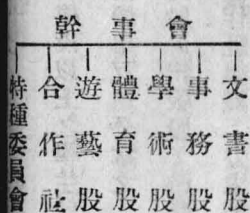 會事幹
文書股
事務股
學術股
體育股
遊藝股
合作社
特種委員會